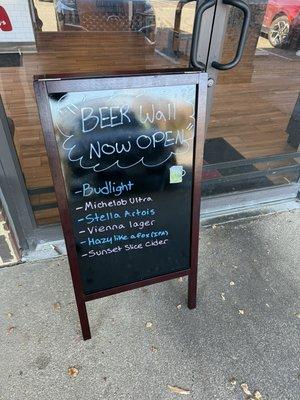 BEER Wall
NOW OPEN
-Budlight
-Michelob Ultra
-Stella Artois
-Vienna lager
-Hazy like a fox (IPA)
-Sunset Slice Cider